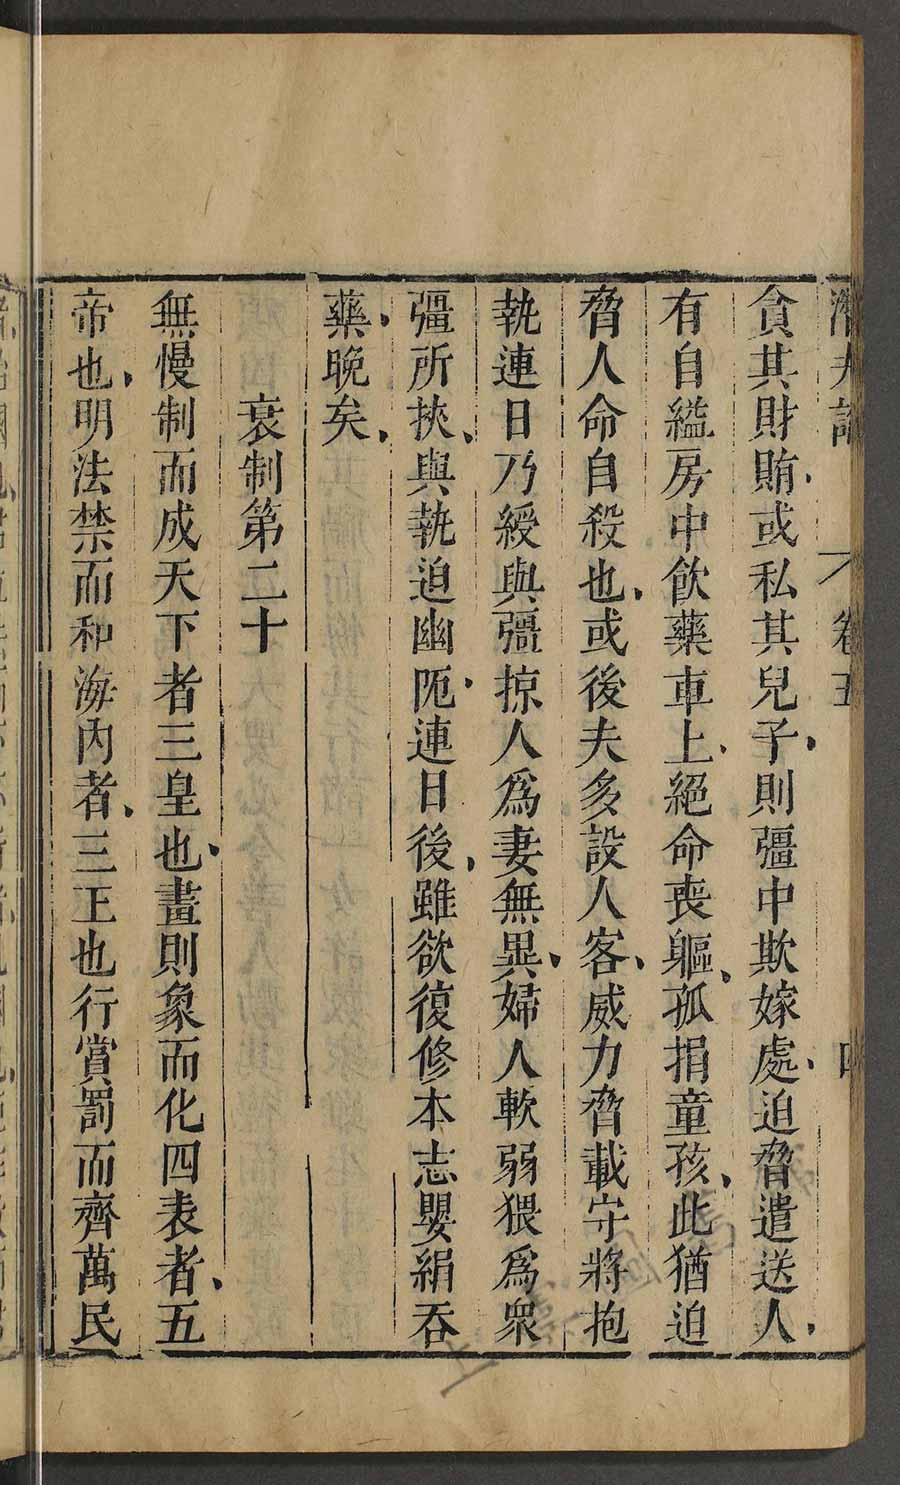 潛夫論 卷五 四
貪其財賄、或私其兒子、則彊中欺嫁處、迫脅遣送人、
有自縊房中飲藥車上、絕命喪軀、孤捐童孩、此猶迫
脅人命自殺也、或後夫多設人客、威力脅載守將抱
執連日乃緩與彊掠人爲妻無異、婦人軟弱猥爲衆
彊所挾、與執迫幽阨、連日後、雖欲復修本志嬰絹吞
藥、晚矣、
衰制第二十
無慢制而成天下者三皇也、畫則象而化四表者、五
帝也、明法禁而和海內者、三王也行賞罰而齊萬民